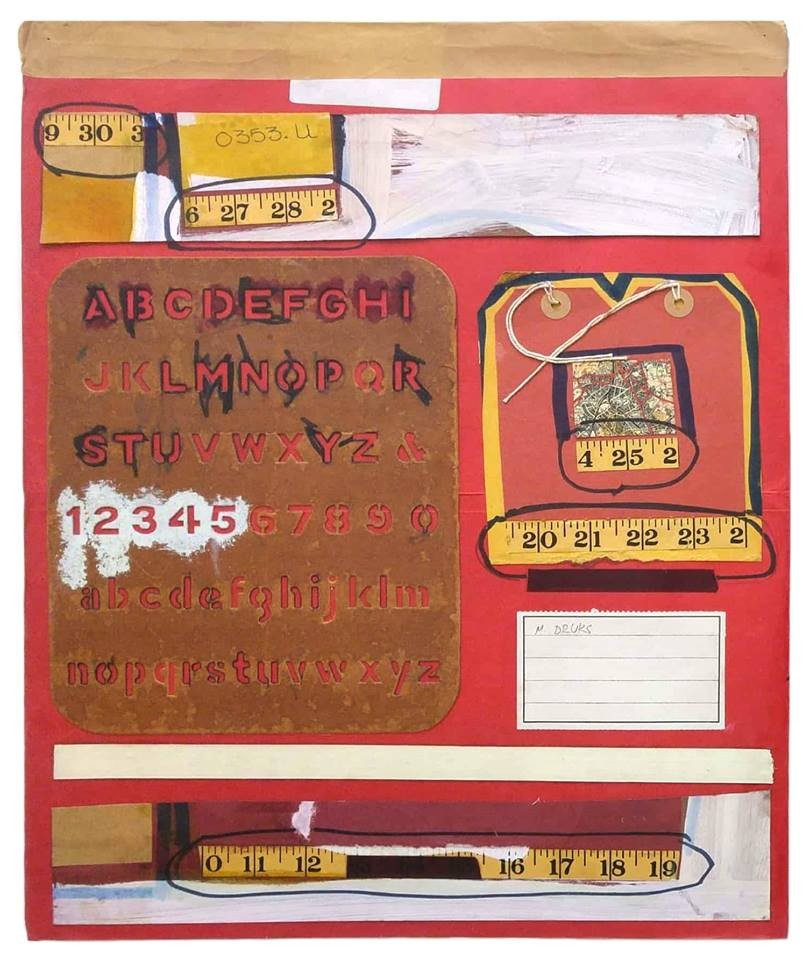 9 30 3
0353.U
6 27 28 2
ABCDEFGHI
JKLMNOPQR
STUVWXYZ &
1234567890
abcdefghijklm
nopqrstuvwxyz
4 25 2
20 21 22 23 2
M. DRUKS
0 11 12 16 17 18 19